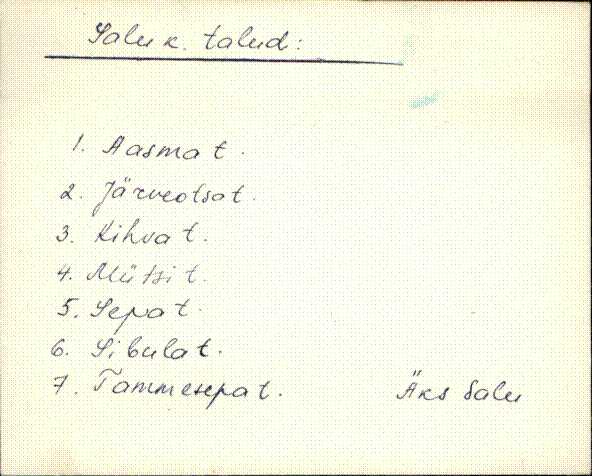 Salu k. talud:
1. Aasma t.
2. Järveotsa t.
3. Kihva t.
4. Mütsi t.
5. Sepa t.
6. Sibula t.
7. Tammesepa t.
Äks Salu